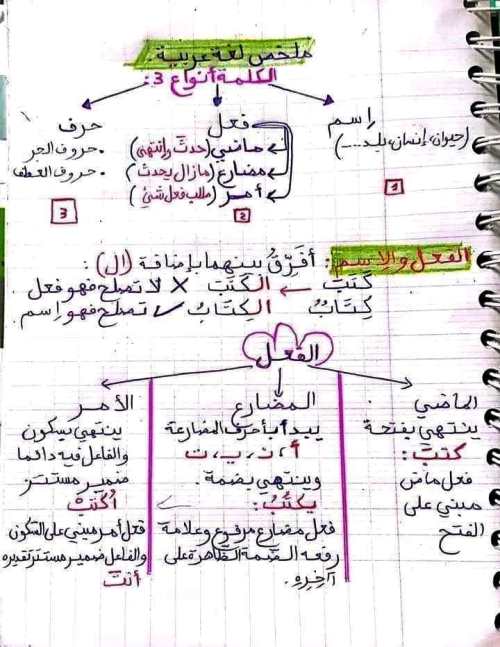 ملخص لغة عربية.
الكلمة أنواع 3:
إسم
(حيوان، إنسان، بلد....)
1
فعل
ماضي (حدثَ وانتهى)
مضارع (مازال يحدث)
أمر (طلب فعل شيئ)
2
حرف
. حروف الجر
. حروف العطف
3
الفعل والإسم: أفَرِّقُ بينهما بإضافة (ال):
كَتَبَ ← الكَتَبَ × لا تصلح فهو فعل
كِتَابُ الكِتَابُ ✓ تصلح فهو إسم
الفعل
الماضي:
ينتهي بفتحة
كتبَ:
فعل ماض
مبني على
الفتح
المضارع
يبدأ بأحرف المضارعة
أ، ن، ي، ت
وينتهي بضمة.
يكتُبُ:
فعل مضارع مرفوع وعلامة
رفعه الضمة الظاهرة على
آخِرِه.
الأمر
ينتهي بسكون
والفاعل فيه دائما
ضمير مستتر
أُكتبْ
فعل أمر مبني على السكون
والفاعل ضمير مستتر تقديره
أنتَ